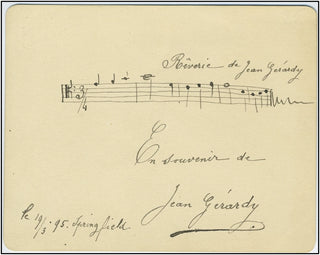 Rêverie de Jean Gérardy
3/4
En souvenir de
Jean Gérardy
le 19/3 - 95. Springfield